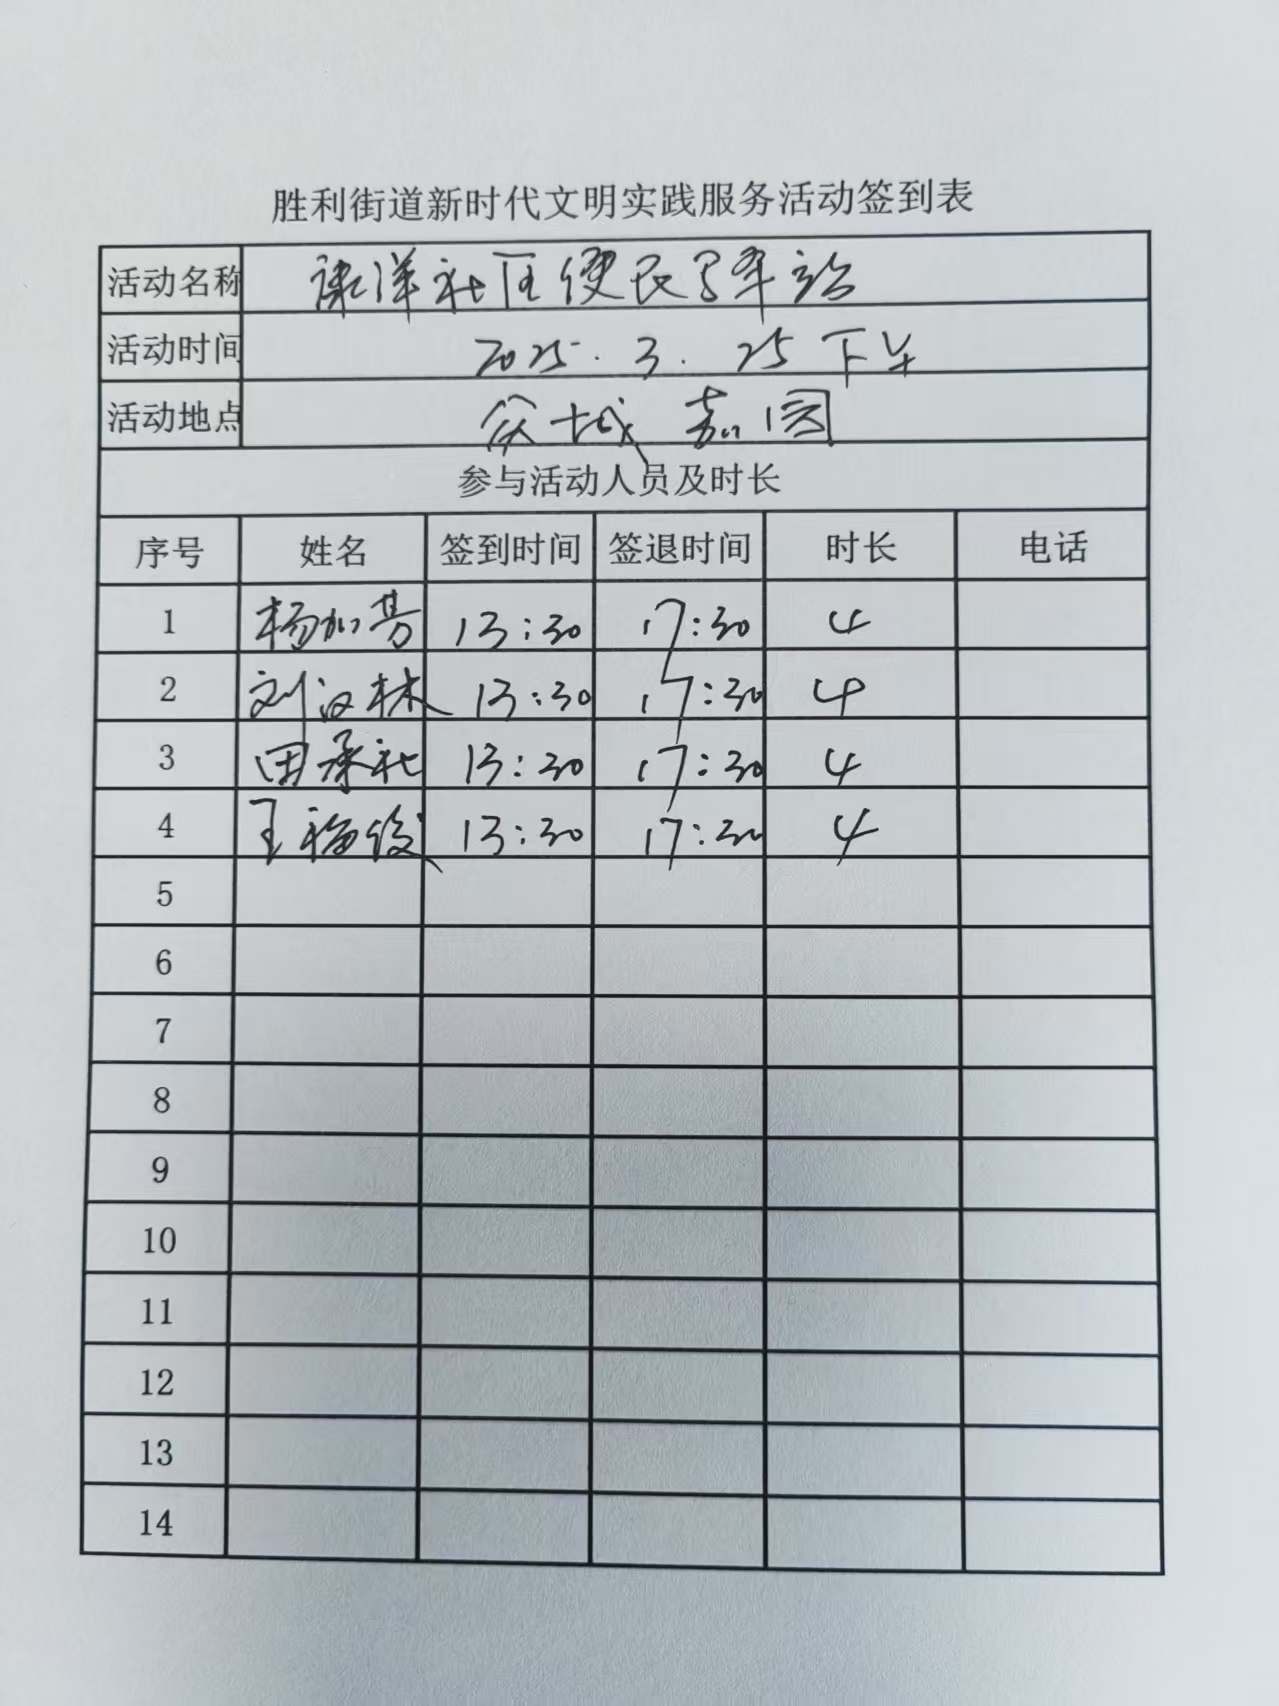 胜利街道新时代文明实践服务活动签到表
活动名称 洋社区便民 车站
活动时间 2025.3.25 下午
活动地点 城嘉园
参与活动人员及时长
序号 姓名 签到时间 签退时间 时长 电话
1 杨加芳 13:30 17:30 4
2 刘汉林 13:30 17:30 4
3 田承社 13:30 17:30 4
4 王福俊 13:30 17:30 4
5
6
7
8
9
10
11
12
13
14